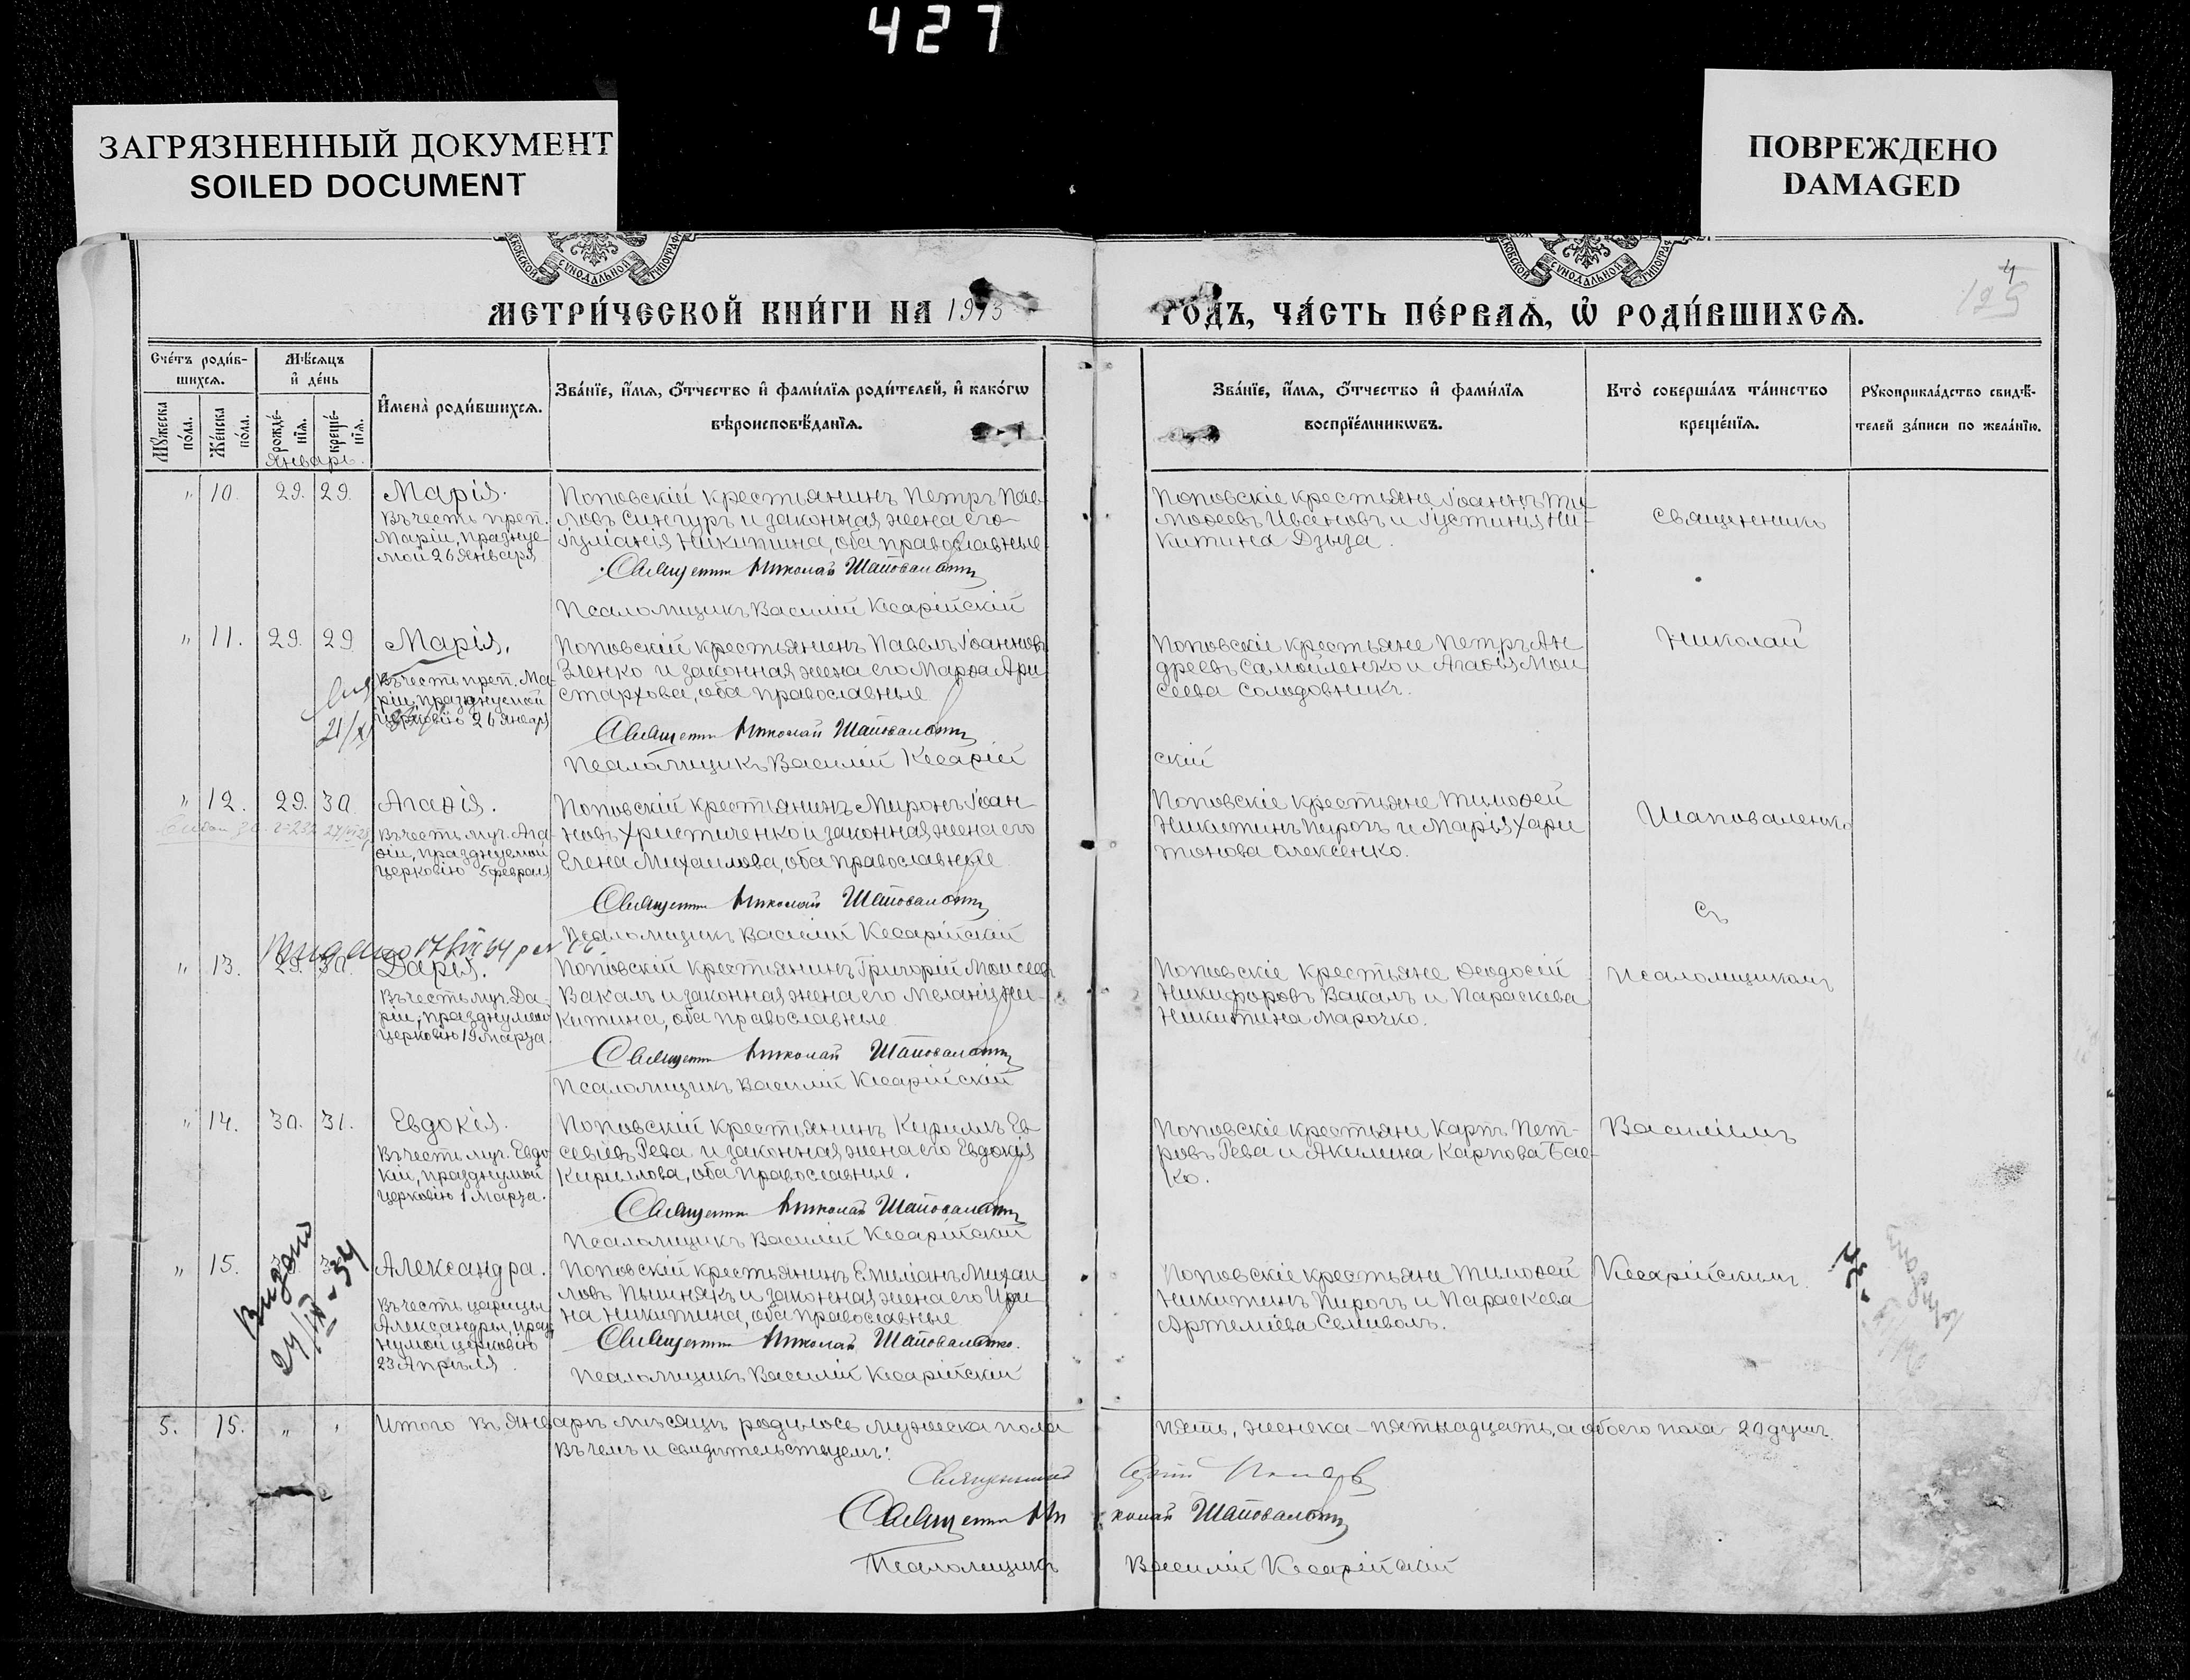 427
ЗАГРЯЗНЕННЫЙ ДОКУМЕНТ
SOILED DOCUMENT
ПОВРЕЖДЕНО
DAMAGED
СУНОДАЛЬНОЙ
СУНОДАЛЬНОЙ
МЕТРИ́ЧЕСКОЙ КНИ́ГИ НА 1913
ГО́ДЪ, ЧА́СТЬ ПЕ́РВАѦ, Ѡ҆ РОДИ́ВШИХСѦ.
125
Сче́тъ роди́в-
шихсѧ.
Мꙋ́жеска по́ла.
Же́нска по́ла.
Мѣ́сѧцъ
и҆ де́нь
рожде́-
нїѧ.
креще́-
нїѧ.
Январь.
И҆мена̀ роди́вшихсѧ.
Зва́нїе, и҆́мѧ, ѻ҆́тчество и҆ фами́лїѧ роди́телей, и҆ како́гѡ
вѣроисповѣ́данїѧ.
Зва́нїе, и҆́мѧ, ѻ҆́тчество и҆ фами́лїѧ
воспрїе́мникѡвъ.
Кто̀ соверша́лъ та́инство
креще́нїѧ.
Рꙋкоприкла́дство свидѣ́-
телей за́писи по жела́нїю.
" 10. 29. 29. Марія.
Въ честь преп.
Маріи, празнуе-
мой 26 Января
Поповскій крестьянинъ Петръ Пав-
ловъ Сингуръ и законная жена его
Іуліанія Никитина, оба православные.
Священникъ Николай Шаповаленко
Псаломщикъ Василій Кесарійскій
Поповскіе крестьяне Іоаннъ Ти-
моѳеевъ Ивановъ и Іустинія Ни-
китина Дзыза.
Священникъ
" 11. 29. 29 Марія.
Въ честь преп. Ма-
ріи, празднуемой
церковію 26 Января
Поповскій крестьянинъ Павелъ Іоанновъ
Зленко и законная жена его Марѳа Ари-
стархова, оба православные
Священникъ Николай Шаповаленко
Псаломщикъ Василій Кесарій
скій
Поповскіе крестьяне Петръ Ан-
дреевъ Самойленко и Агаѳія Мои-
сеева Солодовникъ.
Николай
" 12. 29. 30 Агаѳія.
Въ честь муч. Ага-
ѳіи, празднуемой
церковію 5 февраля
Поповскій крестьянинъ Миронъ Іоан-
новъ Христиченко и законная жена его
Елена Михаилова, оба православные.
Священникъ Николай Шаповаленко
Псаломщикъ Василій Кесарійскій
Поповскіе крестьяне Тимоѳей
Никитинъ Пирогъ и Марія Хари-
тонова Олексенко.
Шаповаленко
съ
" 13. 29. 30. Дарія.
Въ честь муч. Да-
ріи, празднуемой
церковію 19 Марта.
Поповскій крестьянинъ Григорій Моисеевъ
Вакалъ и законная жена его Меланія Ни-
китина, оба православные
Священникъ Николай Шаповаленко
Псаломщикъ Василій Кесарійскій
Поповскіе крестьяне Ѳеодосій
Никифоровъ Вакалъ и Параскева
Никитина Марочко.
псаломщикомъ
" 14. 30. 31. Евдокія.
Въ честь муч. Евдо-
кіи, празднуемой
церковію 1 Марта.
Поповскій крестьянинъ Кириллъ Ев-
севіевъ Рева и законная жена его Евдокія
Кириллова, оба православные.
Священникъ Николай Шаповаленко
Псаломщикъ Василій Кесарійскій
Поповскіе крестьяне Карпъ Пет-
ровъ Рева и Акилина Карпова Бае-
ко.
Василіемъ
" 15. Александра.
Видано
Въ честь царицы
Александры, празд
нуемой церковію
23 Апрѣля.
Поповскій крестьянинъ Емиліанъ Михаи-
ловъ Пышнякъ и законная жена его Ири-
на Никитина, оба православные
Священникъ Николай Шаповаленко.
Псаломщикъ Василій Кесарійскій
Поповскіе крестьяне Тимоѳей
Никитинъ Пирогъ и Параскева
Артеміева Селиволъ.
Кесарійскимъ.
5. 15. " " Итого въ Январѣ мѣсяцѣ родилось мужеска пола
пять, женска - пятнадцать, а обоего пола 20 душъ.
Въ чемъ и свидѣтельствуемъ:
Священникъ
Священникъ Николай Шаповаленко
Псаломщикъ Василій Кесарійскій